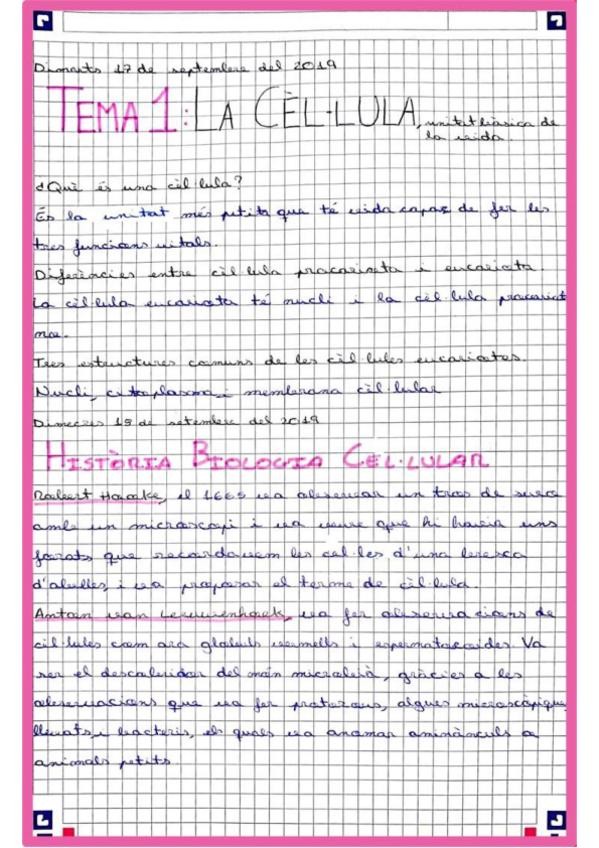 Dimarts 17 de septembre del 2019
TEMA 1: LA CÈL·LULA, unitat bàsica de
la vida.
¿Què és una cèl·lula?
És la unitat més petita que té vida capaç de fer les
tres funcions vitals.
Diferències entre cèl·lula procariota i eucariota.
La cèl·lula eucariota té nucli i la cèl·lula procariot
no.
Tres estructures comuns de les cèl·lules eucariotes.
Nucli, citoplasma i membrana cèl·lular
Dimecres 18 de setembre del 2019
HISTÒRIA BIOLOGIA CEL·LULAR
Robert Hooke, el 1665 va observar un tros de suro
amb un microscopi i va veure que hi havia uns
forats que recordavem les cel·les d'una bresca
d'abelles, i va proposar el terme de cèl·lula.
Antoin van Leeuwenhoek, va fer observacions de
cèl·lules com ara glòbuls vermells i espermatozoides. Va
ser el descobridor del món microbià, gràcies a les
observacions que va fer protozous, algues microscòpique
llevats, i bacteris, els quals va anomar aminànculs o
animals petits